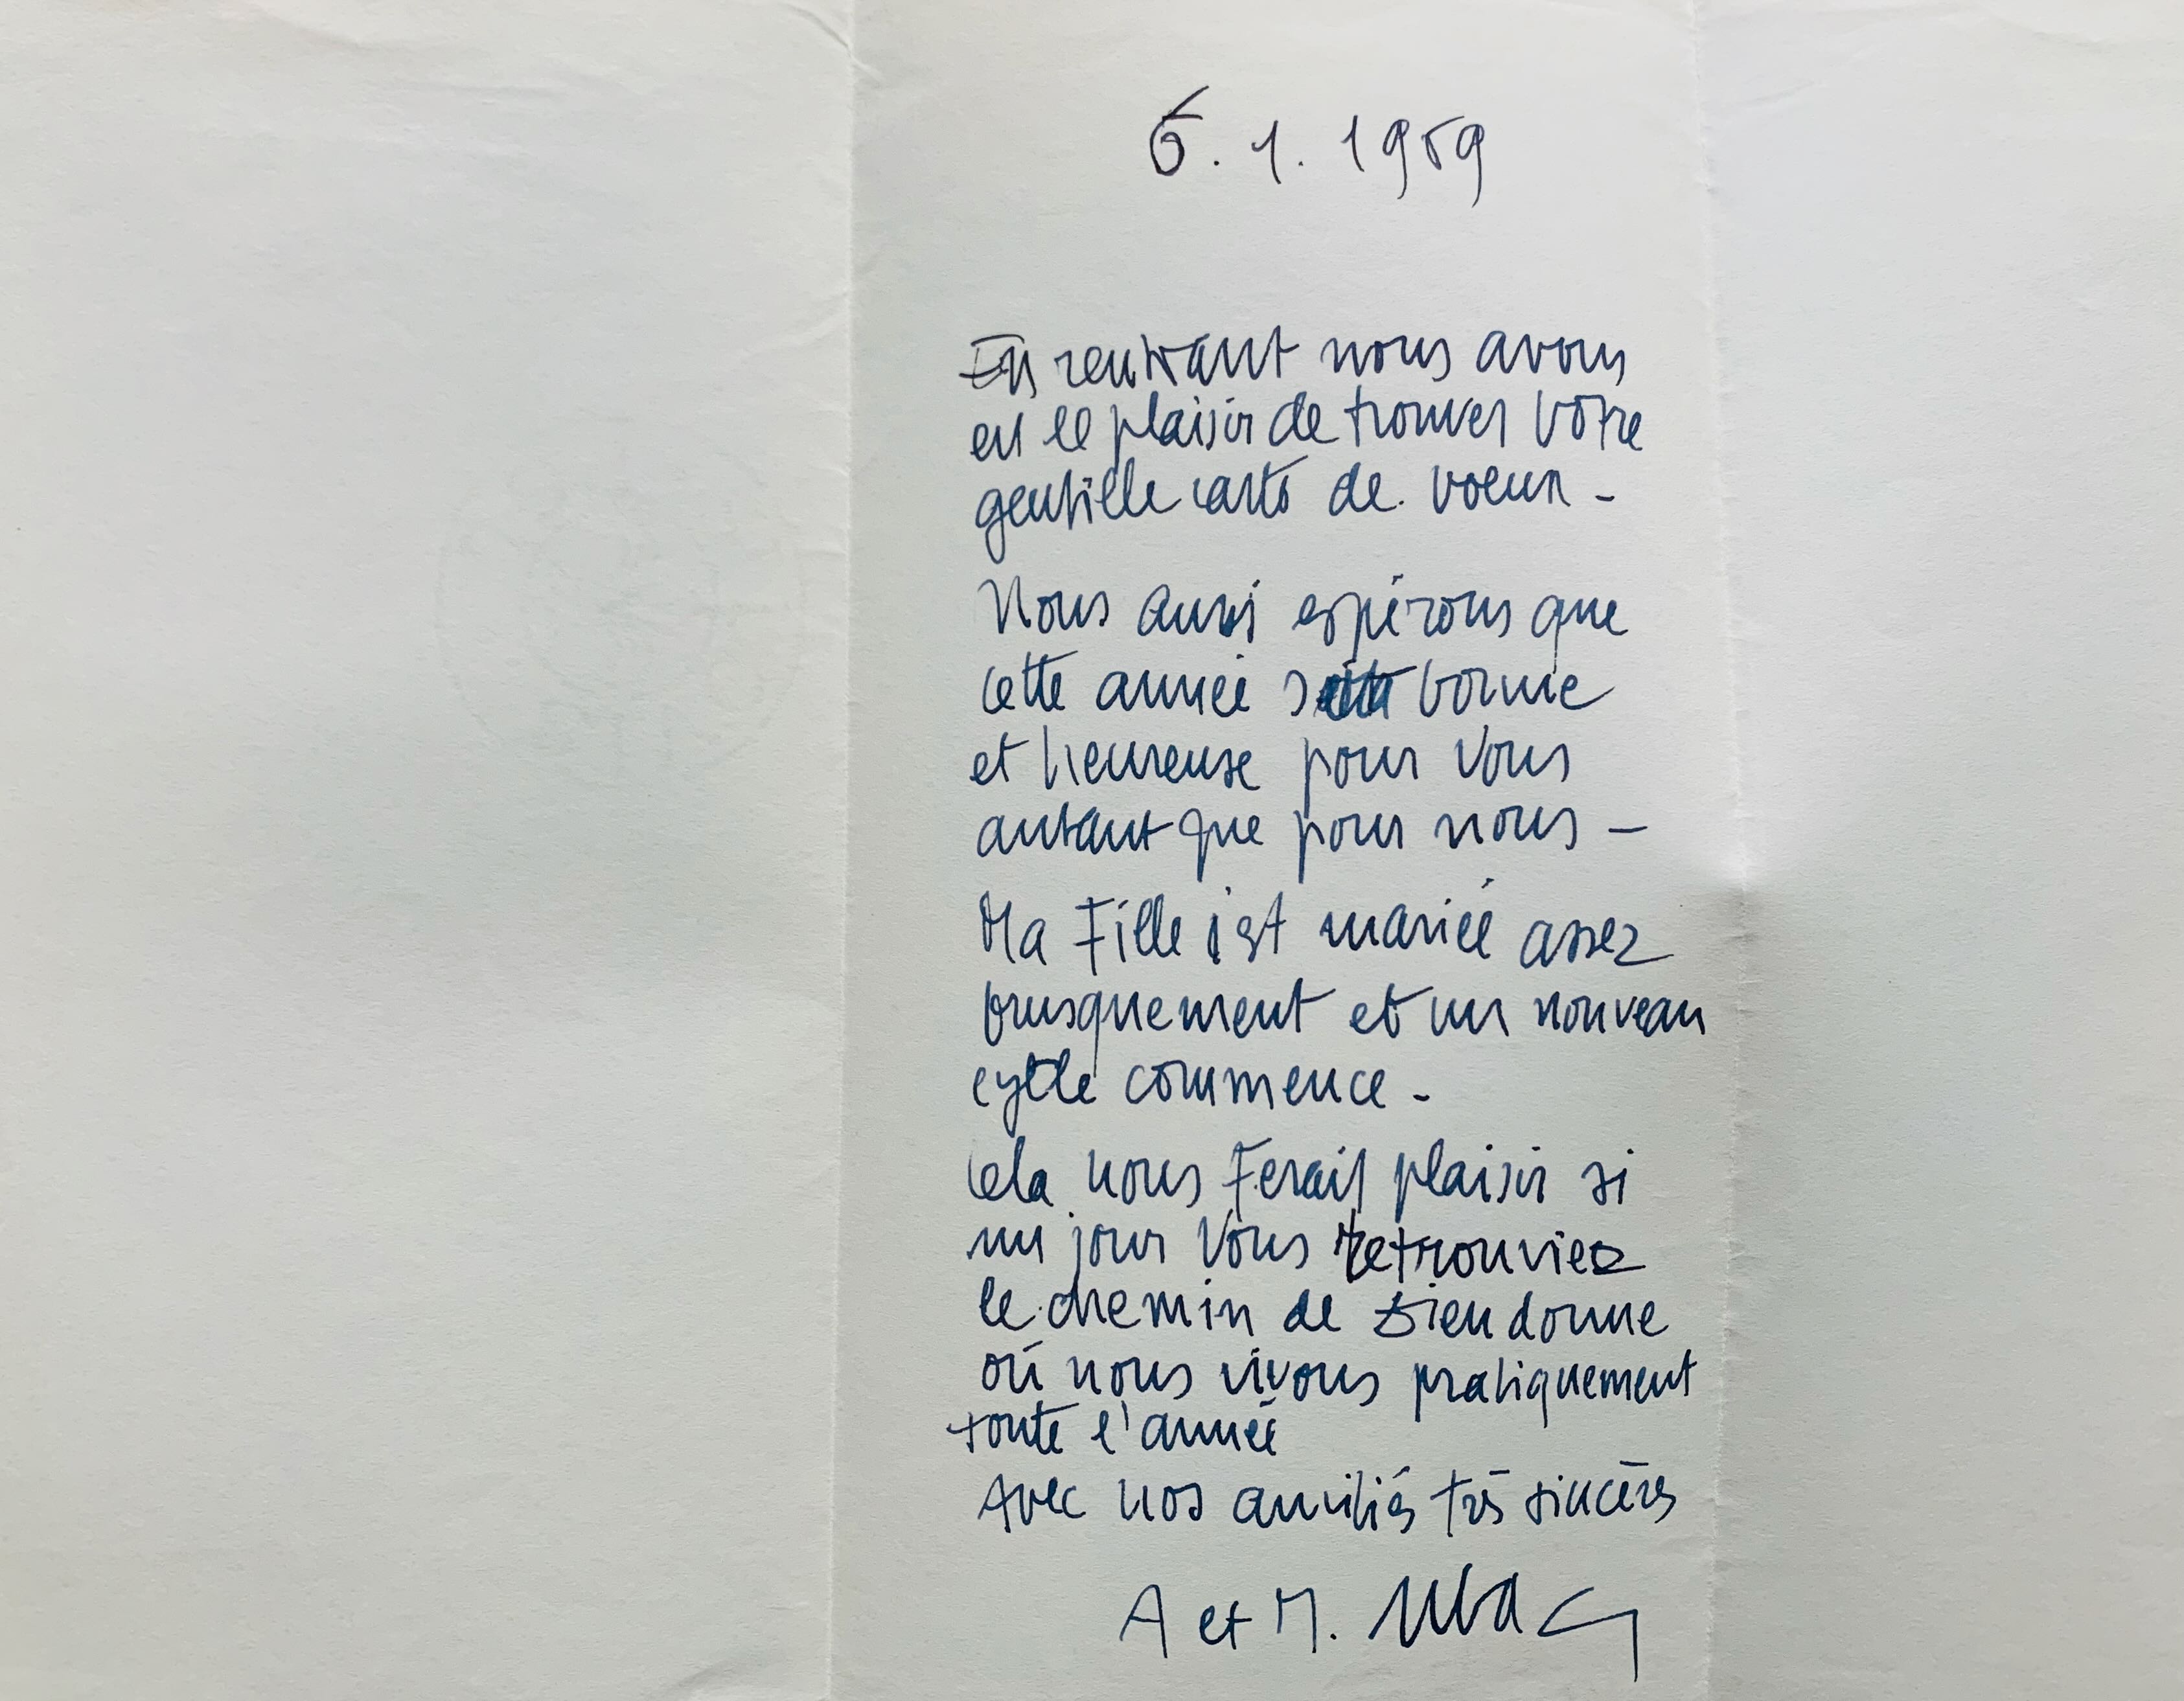 6. 1. 1969
En rentrant nous avons
eu le plaisir de trouver votre
gentille carte de voeux -
Nous aussi espérons que
cette année soit bonne
et heureuse pour vous
autant que pour nous -
Ma Fille s'est mariée assez
brusquement et un nouveau
cycle commence -
Cela nous Ferait plaisir si
un jour Vous retrouviez
le chemin de Dieudonne
où nous vivons pratiquement
toute l'année
Avec nos amitiés très sincères
A et M. Ubac